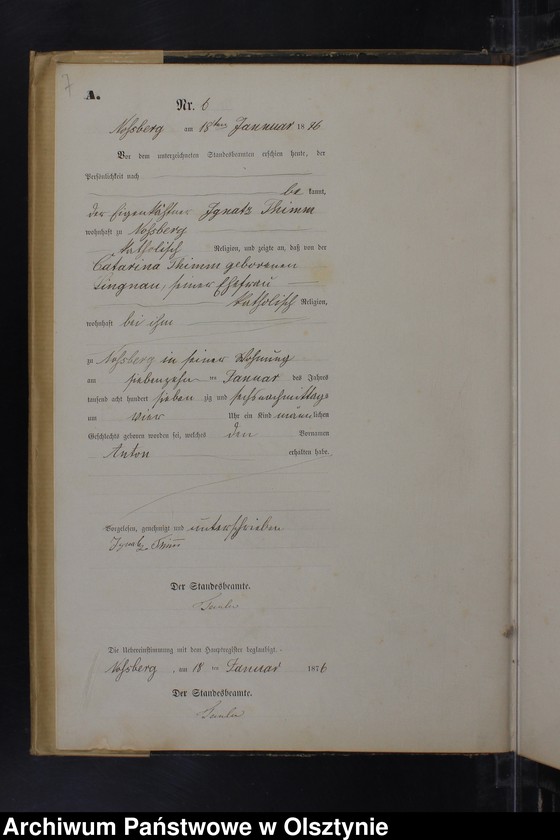 7
A.
Nr. 6
Nossberg am 18ten Jannuar 1876
Vor dem unterzeichneten Standesbeamten erschien heute, der
Persönlichkeit nach
be kannt,
der Eigenkäthner Ignatz Thimm
wohnhaft zu Nossberg
katholisch Religion, und zeigte an, daß von der
Catarina Thimm geborenen
Lingnau, seiner Ehefrau
katholisch Religion,
wohnhaft bei ihm
zu Nossberg in seiner Wohnung
am siebenzehn ten Januar des Jahres
tausend acht hundert sieben zig und sechs nachmittags
um vier Uhr ein Kind männlichen
Geschlechts geboren worden sei, welches den Vornamen
Anton erhalten habe.
Vorgelesen, genehmigt und unterschrieben
Ignatz Thimm
Der Standesbeamte.
Die Uebereinstimmung mit dem Hauptregister beglaubigt.
Nossberg, am 18 ten Januar 1876
Der Standesbeamte.
Archiwum Państwowe w Olsztynie